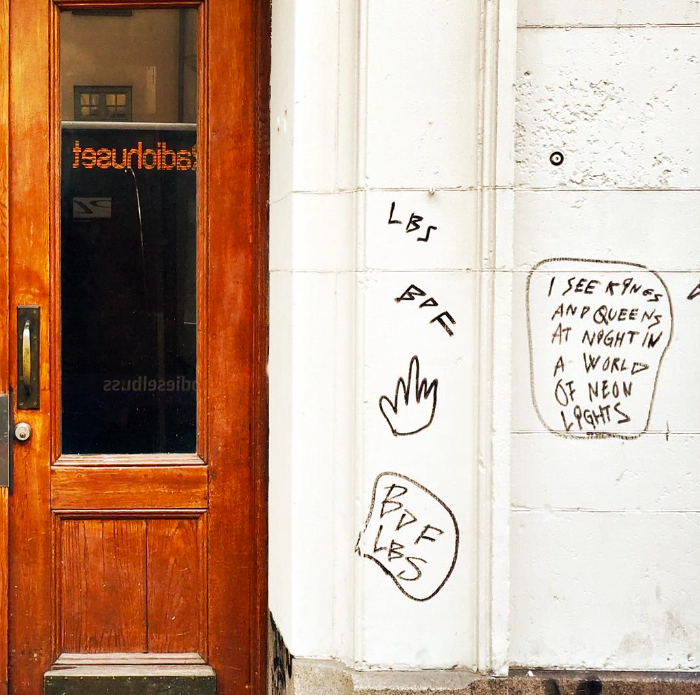 Radiohuset
odieselbuss
LBS
BDF
BDF
LBS
I SEE KINGS
AND QUEENS
AT NIGHT IN
A WORLD
OF NEON
LIGHTS